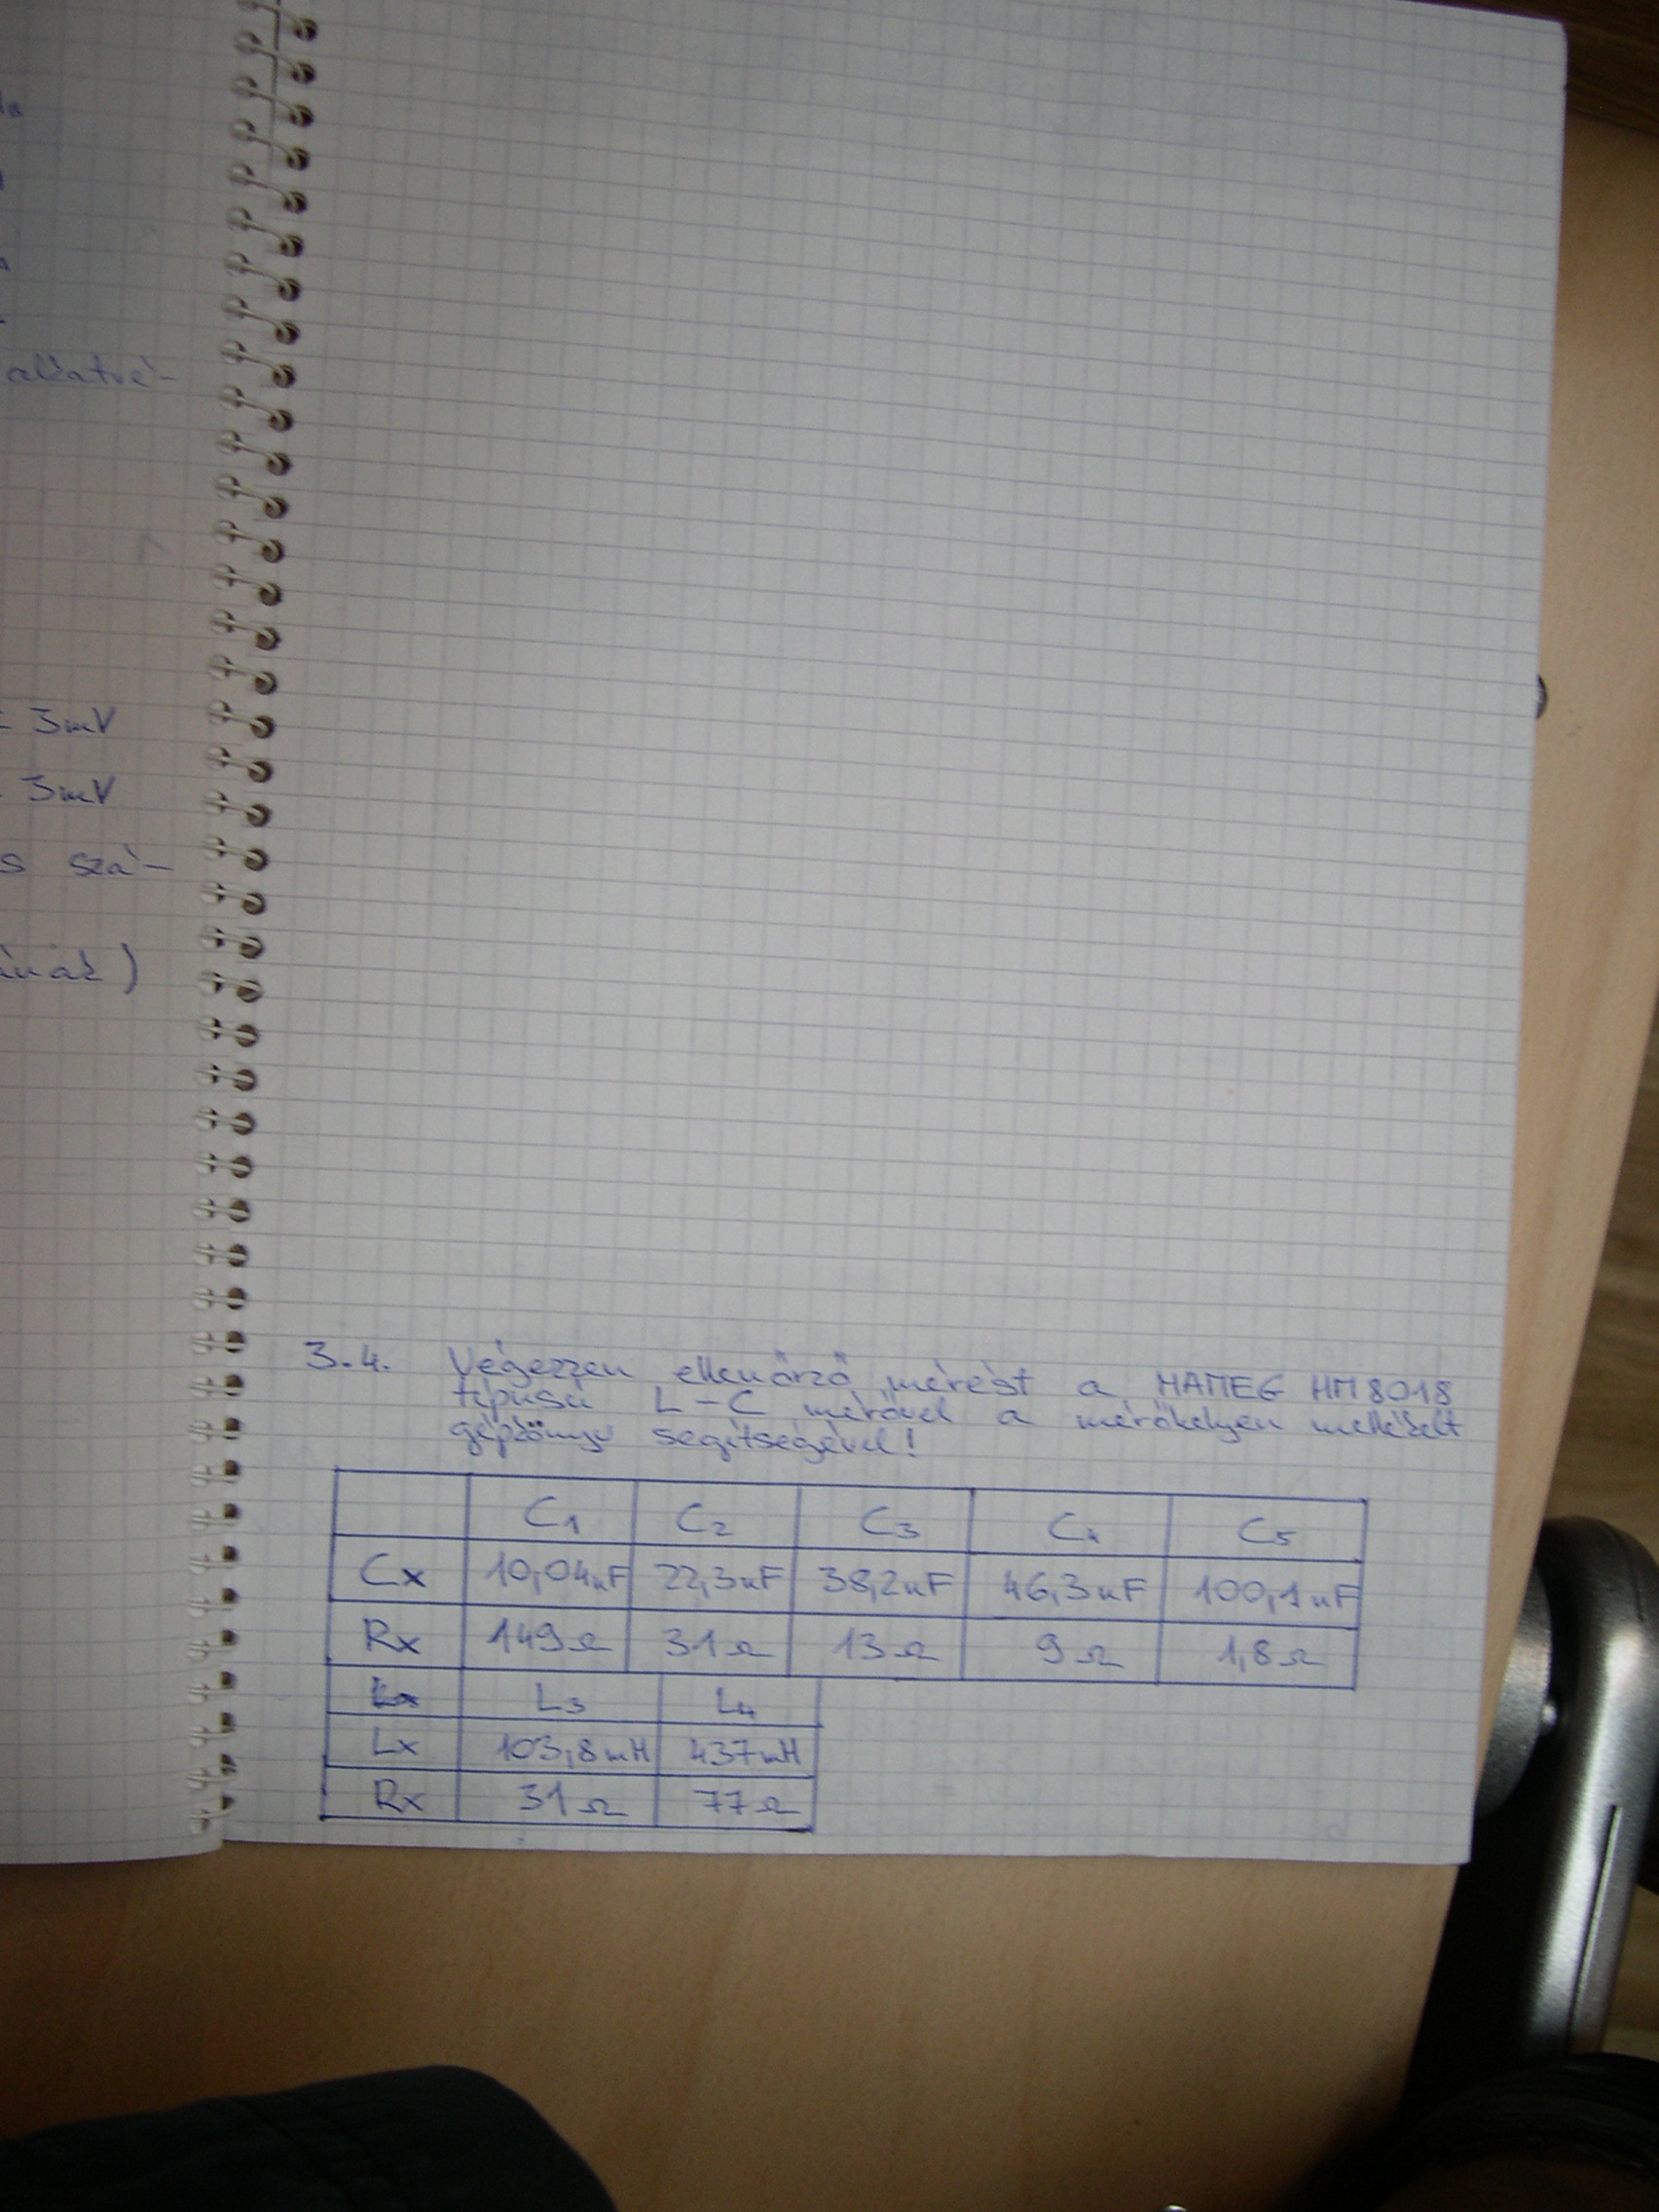 allatré-
= 3mV
- 3mV
s szá-
ának)
3.4. Végezzen ellenőrző mérést a HAMEG HM8018
típusú L-C mérővel a mérőhelyen mellékelt
gépkönyv segítségével!
C1 C2 C3 C4 C5
Cx 10,04nF 22,3nF 38,2nF 46,3nF 100,1nF
Rx 149Ω 31Ω 13Ω 9Ω 1,8Ω
L3 L4
Lx 103,8mH 437mH
Rx 31Ω 77Ω